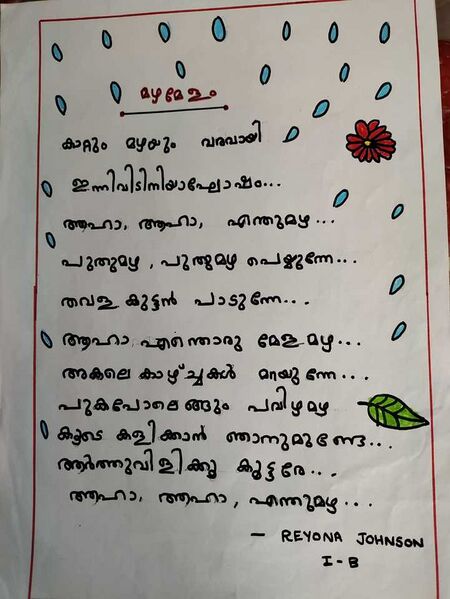 മഴമേളം
കാറ്റും മഴയും വരവായി
ഇന്നിവിടിനിയാഘോഷം...
ആഹാ, ആഹാ, എന്തുമഴ...
പുതുമഴ, പുതുമഴ പെയ്യുന്നേ...
തവള കുട്ടൻ പാടുന്നേ...
ആഹാ, എന്തൊരു മേള മഴ...
അകലെ കാഴ്ച്ചകൾ മറയുന്നേ...
പുകപോലെങ്ങും പവിഴമഴ
കൂടെ കളിക്കാൻ ഞാനുമുണ്ടേ...
ആർത്തുവിളിക്കൂ കൂട്ടരേ...
ആഹാ, ആഹാ, എന്തുമഴ...
- REYONA JOHNSON
I-B